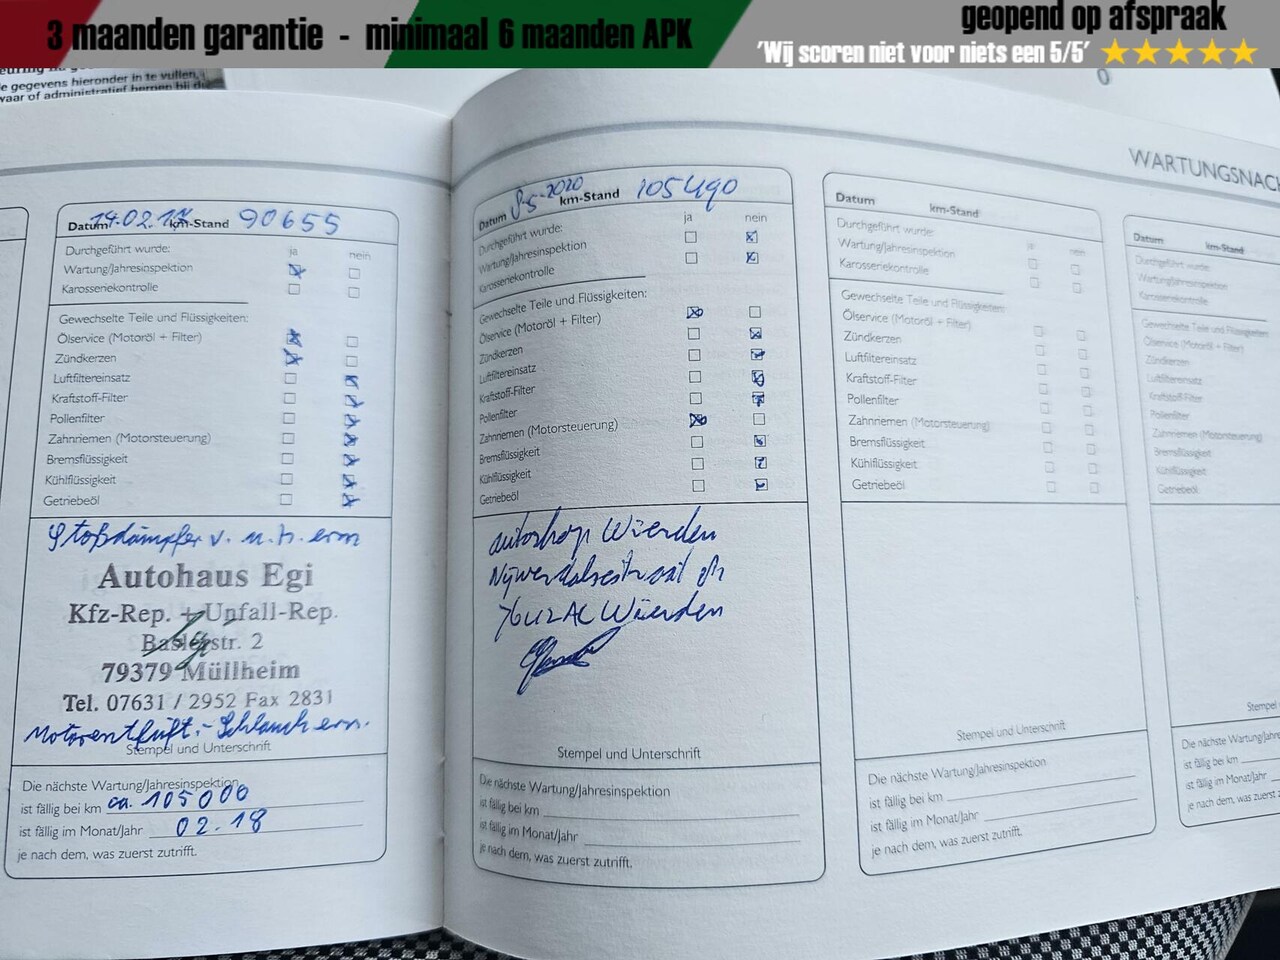 3 maanden garantie - minimaal 6 maanden APK
geopend op afspraak
'Wij scoren niet voor niets een 5/5'
e gegevens hieronder in te vullen,
WARTUNGSNACH
Datum 14.02.17 km-Stand 90655
Durchgeführt wurde: ja nein
Wartung/Jahresinspektion
Karosseriekontrolle
Gewechselte Teile und Flüssigkeiten:
Ölservice (Motoröl + Filter)
Zündkerzen
Luftfiltereinsatz
Kraftstoff-Filter
Pollenfilter
Zahnriemen (Motorsteuerung)
Bremsflüssigkeit
Kühlflüssigkeit
Getriebeöl
Stoßdämpfer v. u. h. ern
Autohaus Egi
Kfz-Rep. + Unfall-Rep.
Baslerstr. 2
79379 Müllheim
Tel. 07631 / 2952 Fax 2831
Motorentlüft.-Schlauch ern.
Stempel und Unterschrift
Die nächste Wartung/Jahresinspektion
ist fällig bei km ca. 105000
ist fällig im Monat/Jahr 02.18
je nach dem, was zuerst zutrifft.
Datum 8-5-2020 km-Stand 105490
ja nein
Durchgeführt wurde:
Wartung/Jahresinspektion
Karosseriekontrolle
Gewechselte Teile und Flüssigkeiten:
Ölservice (Motoröl + Filter)
Zündkerzen
Luftfiltereinsatz
Kraftstoff-Filter
Pollenfilter
Zahnriemen (Motorsteuerung)
Bremsflüssigkeit
Kühlflüssigkeit
Getriebeöl
autoshop Wierden
Nijverdalsestraat
7642 AC Wierden
Stempel und Unterschrift
Die nächste Wartung/Jahresinspektion
ist fällig bei km
ist fällig im Monat/Jahr
je nach dem, was zuerst zutrifft.
Datum km-Stand
Durchgeführt wurde: ja nein
Wartung/Jahresinspektion
Karosseriekontrolle
Gewechselte Teile und Flüssigkeiten:
Ölservice (Motoröl + Filter)
Zündkerzen
Luftfiltereinsatz
Kraftstoff-Filter
Pollenfilter
Zahnriemen (Motorsteuerung)
Bremsflüssigkeit
Kühlflüssigkeit
Getriebeöl
Stempel und Unterschrift
Die nächste Wartung/Jahresinspektion
ist fällig bei km
ist fällig im Monat/Jahr
je nach dem, was zuerst zutrifft.
Datum km-Stand
Durchgeführt wurde:
Wartung/Jahresinspektion
Karosseriekontrolle
Gewechselte Teile und Flüssigkeiten:
Ölservice (Motoröl + Filter)
Zündkerzen
Luftfiltereinsatz
Kraftstoff-Filter
Pollenfilter
Zahnriemen (Motorsteuerung)
Bremsflüssigkeit
Kühlflüssigkeit
Getriebeöl
Stempel
Die nächste Wartung/Jahre
ist fällig bei km
ist fällig im Monat/Jahr
je nach dem, was zuerst z